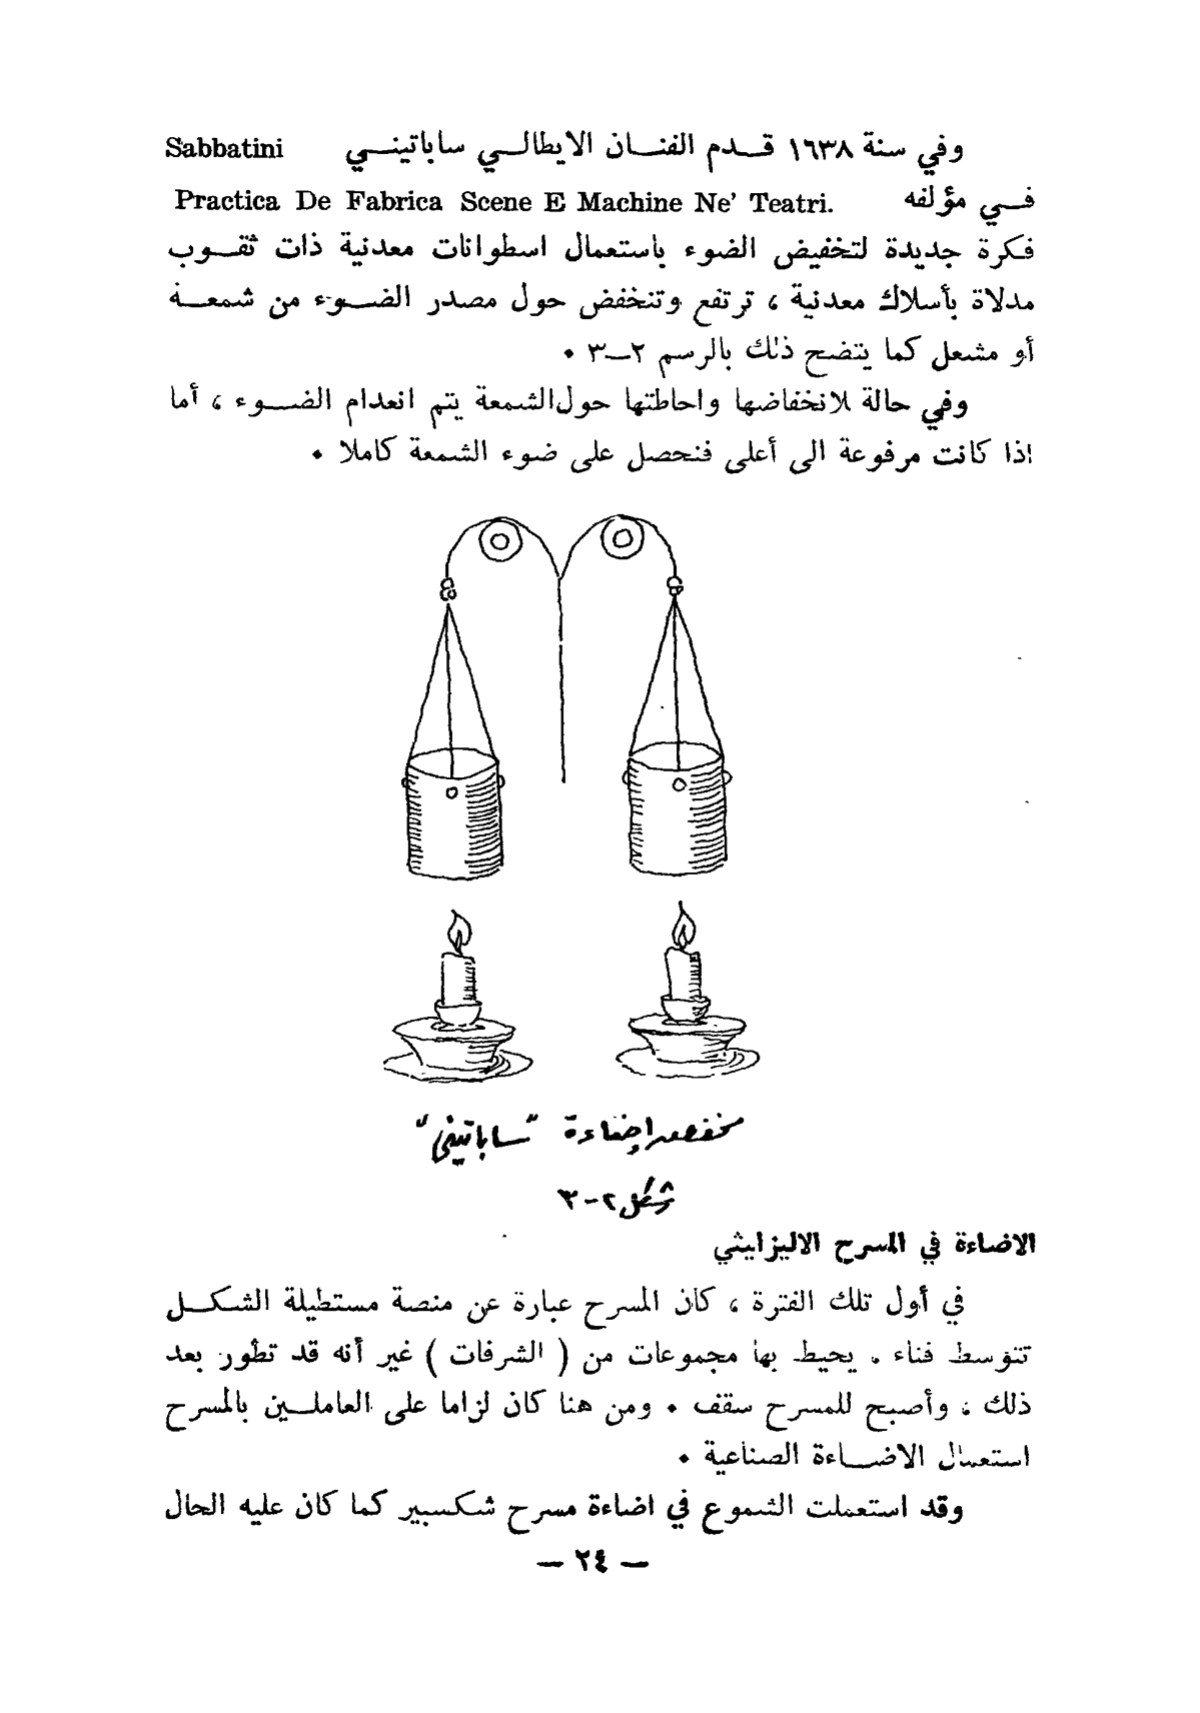 وفي سنة ١٦٣٨ قـــدم الفنـــان الايطالـــي ساباتينـــي Sabbatini
فـــي مؤلفه Practica De Fabrica Scene E Machine Ne' Teatri.
فكرة جديدة لتخفيض الضوء باستعمال اسطوانات معدنية ذات ثقـــوب
مدلاة بأسلاك معدنية ، ترتفع وتنخفض حول مصدر الضـــوء من شمعـــة
أو مشعل كما يتضح ذلك بالرسم ٢ــ٣ •
وفي حالة لانخفاضها واحاطتها حول الشمعة يتم انعدام الضـــوء ، أما
اذا كانت مرفوعة الى أعلى فنحصل على ضوء الشمعة كاملا •
مخفض إضاءة "ساباتيني"
شكل ٢-٣
الاضاءة في المسرح الاليزابيثي
في أول تلك الفترة ، كان المسرح عبارة عن منصة مستطيلة الشكـــل
تتوسط فناء . يحيط بها مجموعات من ( الشرفات ) غير أنه قد تطور بعد
ذلك ، وأصبح للمسرح سقف • ومن هنا كان لزاما على العاملـــين بالمسرح
استعمال الاضـــاءة الصناعية •
وقد استعملت الشموع في اضاءة مسرح شكسبير كما كان عليه الحال
— ٢٤ —